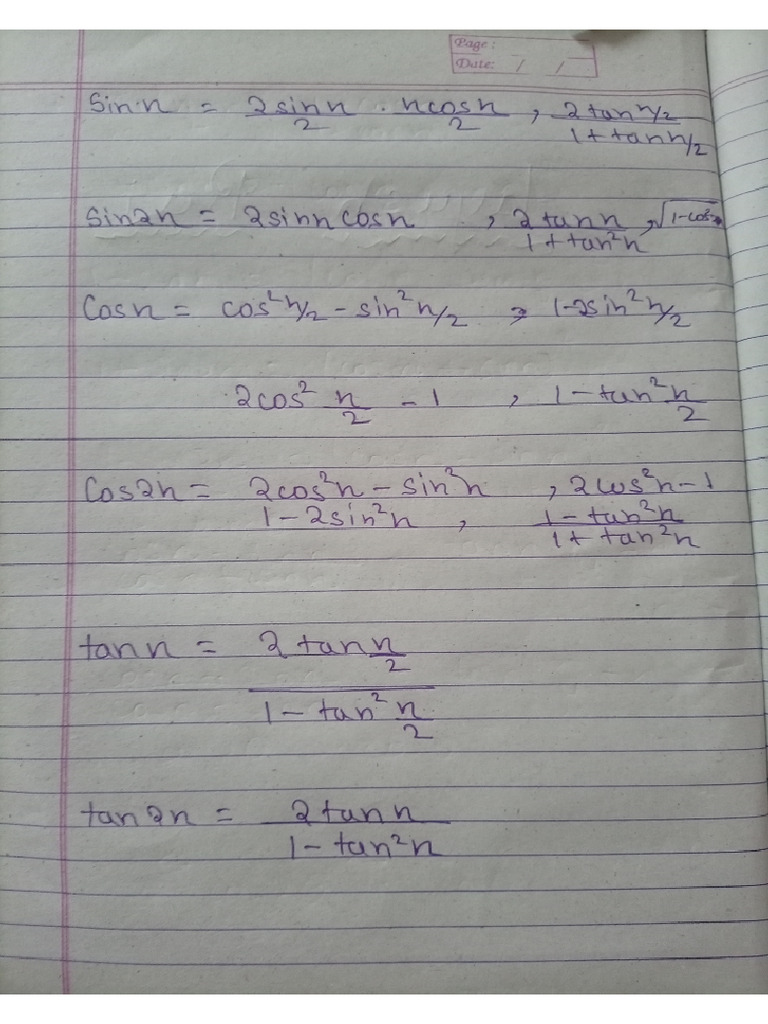 Page:
Date: / /
Sin n = 2sin n/2 . n cos n/2 , 2tan n/2 / 1 + tan n/2
Sin2n = 2sinn cosn , 2tann / 1 + tan²n , √1-cos²
Cosn = cos² n/2 - sin² n/2 , 1-2sin² n/2
2cos² n/2 - 1 , 1 - tan² n/2
Cos2n = 2cos²n - sin²n , 2cos²n - 1
1 - 2sin²n , 1 - tan²n / 1 + tan²n
tan n = 2 tan n/2 / 1 - tan² n/2
tan2n = 2tann / 1 - tan²n